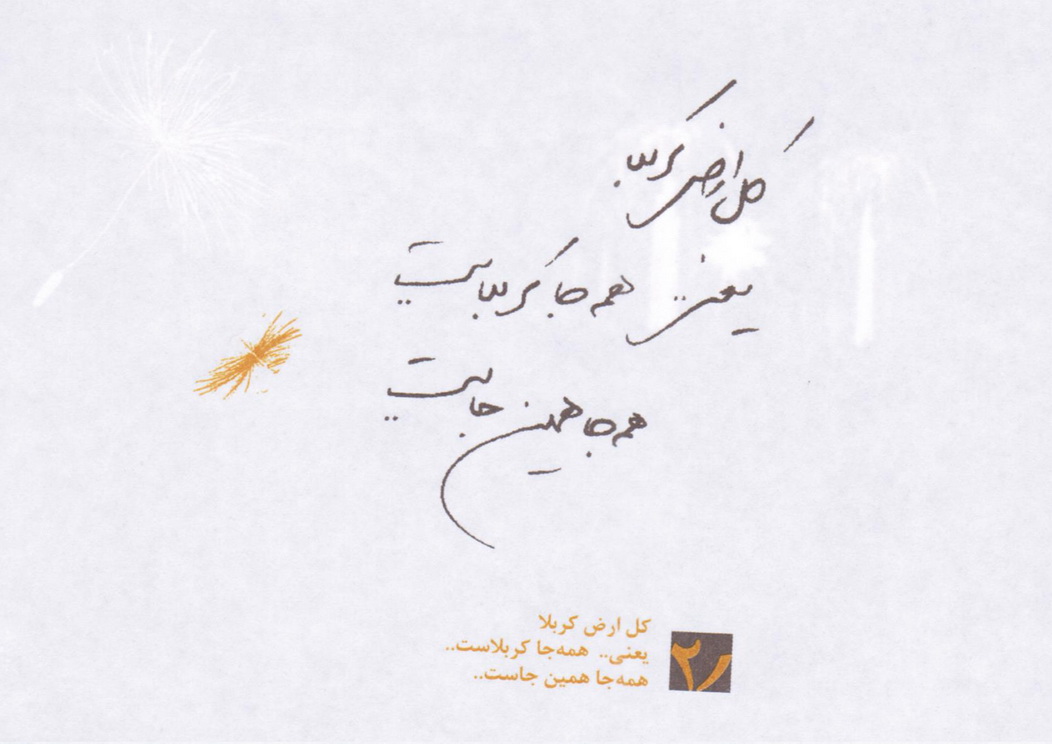 کل ارض کربلا
یعنی.. همه‌جا کربلاست..
همه‌جا همین جاست..
۲۱
کل ارض کربلا
یعنی.. همه‌جا کربلاست..
همه‌جا همین جاست..